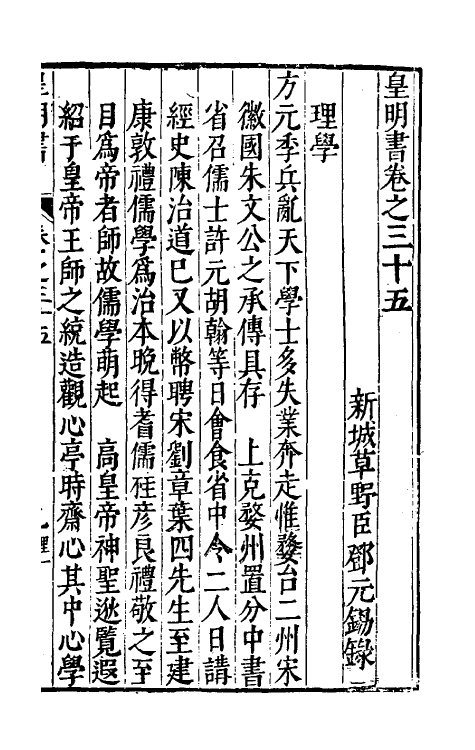 皇明書卷之三十五
新城草野臣鄧元錫錄
理學
方元季兵亂天下學士多失業奔走惟婺台二州宋
徽國朱文公之承傳具存　上克婺州置分中書
省召儒士許元胡翰等日會食省中令二人日講
經史陳治道已又以幣聘宋劉章葉四先生至建
康敦禮儒學爲治本晚得耆儒桂彥良禮敬之至
目爲帝者師故儒學萌起　高皇帝神聖逖覽遐
紹于皇帝王師之統造觀心亭時齋心其中心學
皇明書　卷之三十五